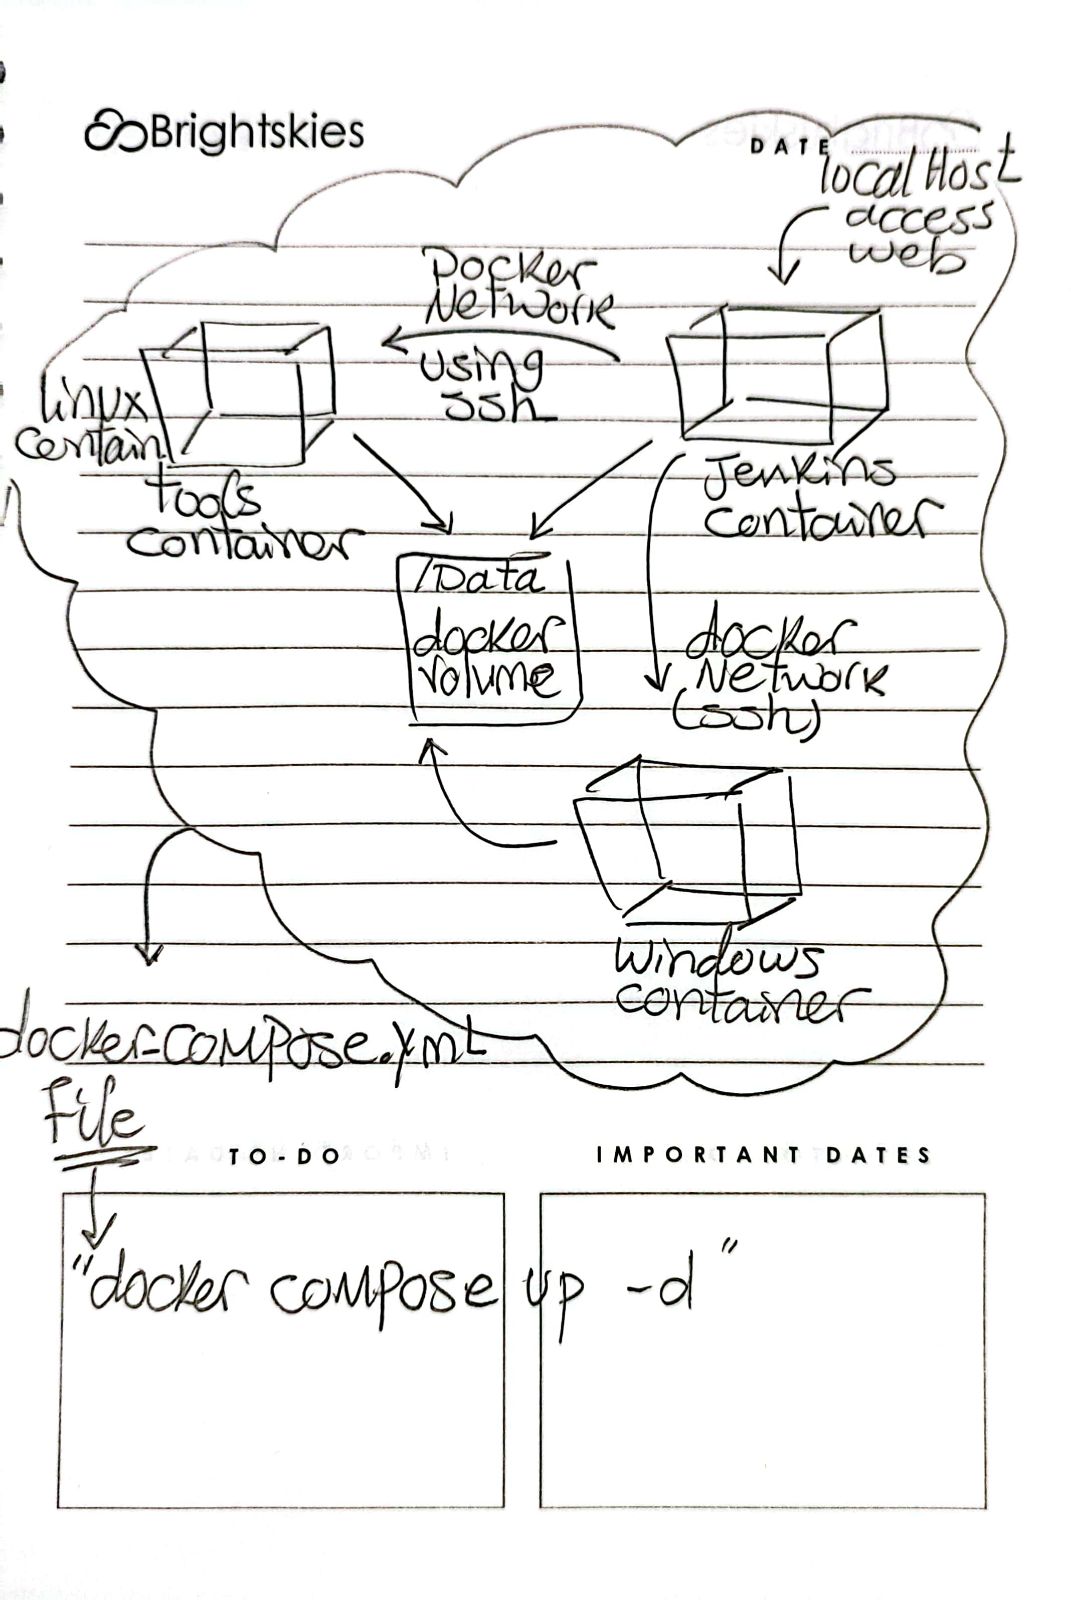 Brightskies
DATE
local Host
access
web
Docker
Network
using
ssh
linux
contain
tools
container
Jenkins
container
/Data
docker
volume
docker
Network
(ssh)
windows
container
docker-compose.yml
File
TO-DO
IMPORTANT DATES
"docker compose up -d"